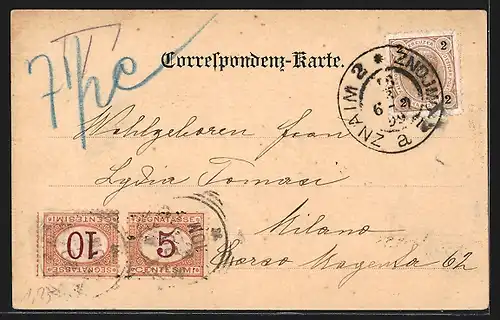 T
Correspondenz-Karte.
2 KREUZER 2
2 2
ZNAIM 2 * ZNOJMO
6
99
a
Wohlgeboren Frau
Lydia Tomasi
Milano
Corso Magenta 62
SEGNATASSE
10
CENTESIMI
SEGNATASSE
5
CENTESIMI